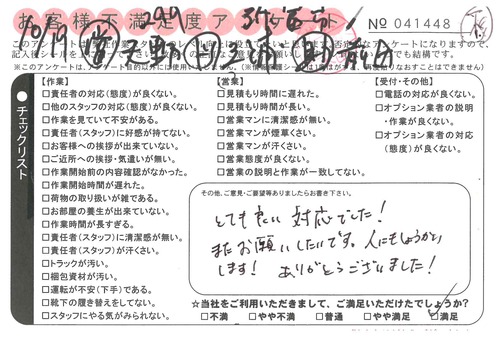 お客様不満足度アンケート
№ 041448
10/19
チェックリスト
【作業】
□責任者の対応(態度)が良くない。
□他のスタッフの対応(態度)が良くない。
□作業を見ていて不安がある。
□責任者(スタッフ)に好感が持てない。
□お客様への挨拶が出来ていない。
□ご近所への挨拶・気遣いが無い。
□作業開始前の内容確認がなかった。
□作業開始時間が遅れた。
□荷物の取り扱いが雑である。
□お部屋の養生が出来ていない。
□作業時間が長すぎる。
□責任者(スタッフ)に清潔感が無い。
□責任者(スタッフ)が汗くさい。
□トラックが汚い。
□梱包資材が汚い。
□運転が不安(下手)である。
□靴下の履き替えをしてない。
□スタッフにやる気がみられない。
【営業】
□見積もり時間に遅れた。
□見積もり時間が長い。
□営業マンに清潔感が無い。
□営業マンが煙草くさい。
□営業マンが汗くさい。
□営業態度が良くない。
□営業の説明と作業が一致してない。
【受付・その他】
□電話の対応が良くない。
□オプション業者の説明
・作業が良くない。
□オプション業者の対応
(態度)が良くない。
その他、ご意見・ご要望等ありましたらお書き下さい。
とても良い対応でした!
またお願いしたいです。人にもしょうかい
します! ありがとうございました!
☆当社をご利用いただきまして、ご満足いただけたでしょうか?
□不満 □やや不満 □普通 □やや満足 □満足